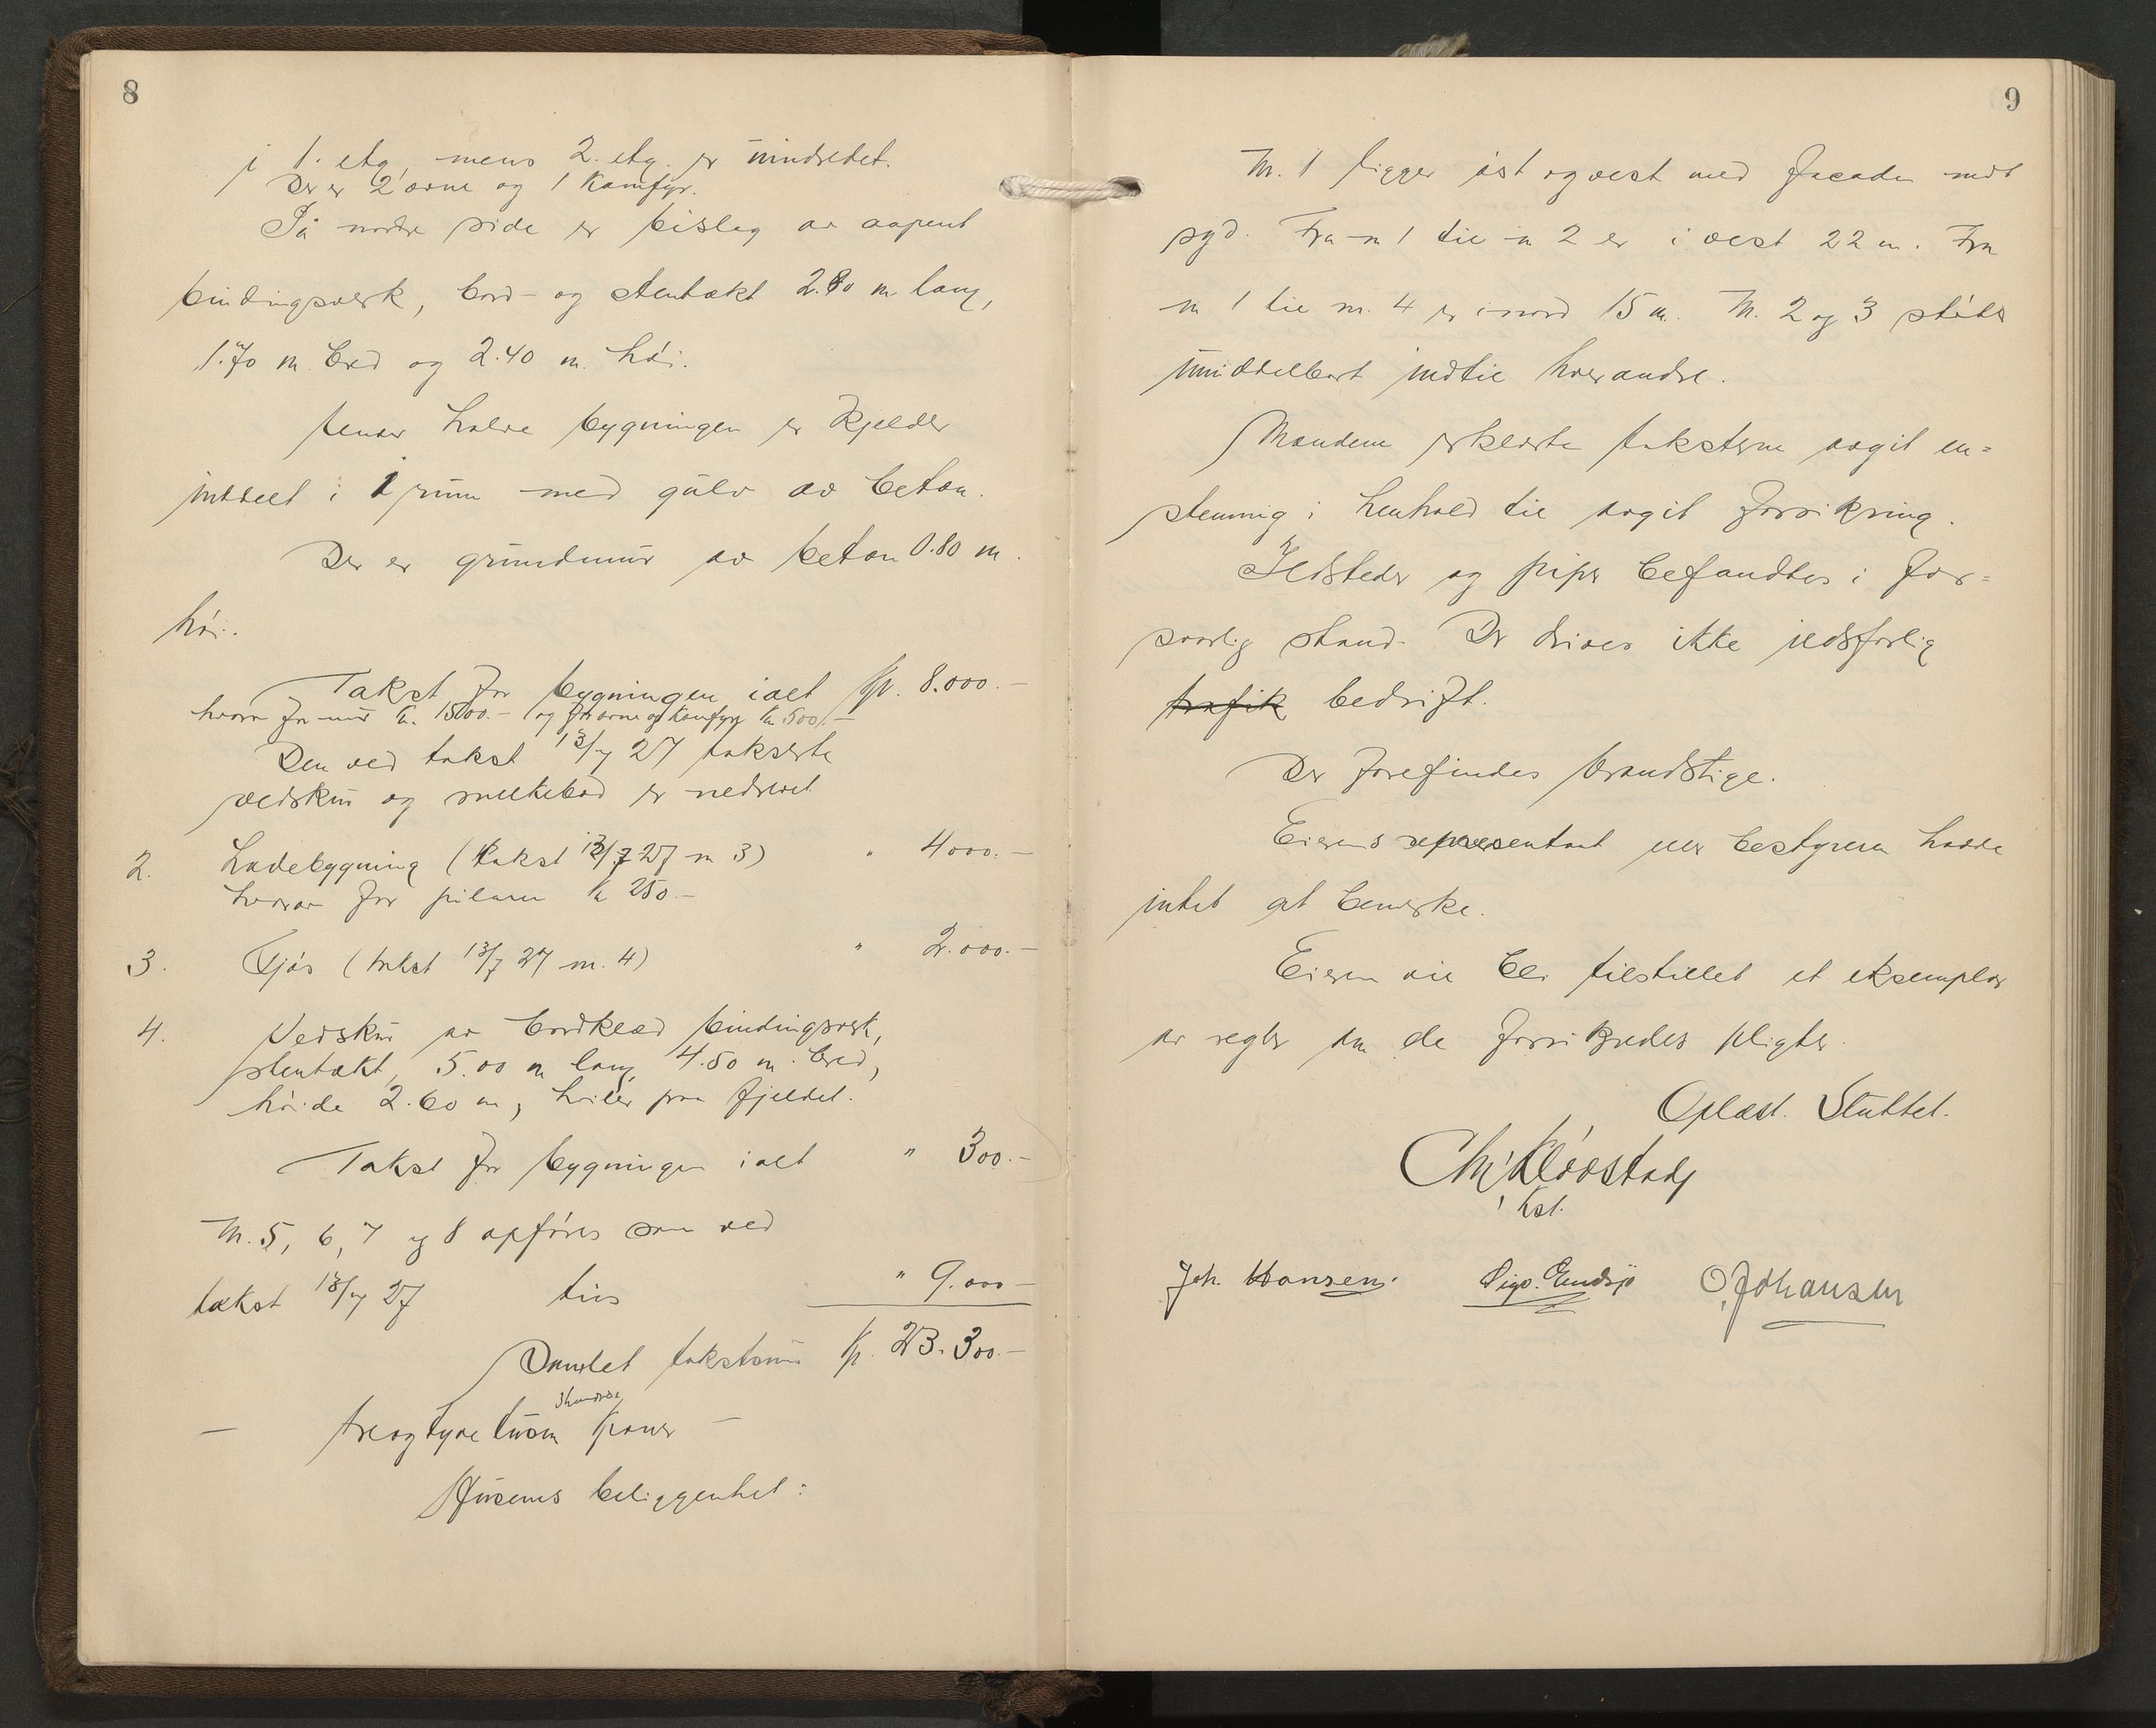 8
i 1. etg, mens 2. etg. er uindredet.
Der er 2 ovne og 1 Komfyr.
På nordre side er bislag av aapent
bindingsverk, bord- og stentækt 2.80 m lang,
1.70 m. bred og 2.40 m. høi.
Under halve bygningen er kjelder
inddelt i 1 rum med gulv av beton.
Der er grundmur av beton 0.80 m.
høi.
Takst for bygningen ialt kr. 8.000.-
hvorav for mur kr. 1500.- og for ovne og Komfyr kr 500.-
Den ved takst 13/7 27 takserte
vedskur og melkebod er nedrevet
2. Ladebygning (takst 13/7 27 m 3) " 4000.-
hvorav for pilarer kr 250.-
3. Fjøs (takst 13/7 27 m. 4) " 2.000.-
4. Vedskur av bordklæd bindingsverk,
stentækt, 5.00 m lang, 4.50 m. bred,
høide 2.60 m, hviler paa fjeldet.
Takst for bygningen ialt " 300.-
M. 5, 6, 7 og 8 opføres som ved
takst 13/7 27 tils " 9.000-
Samlet takstsum kr. 23.300.-
- treogtyve tusen 3hundrede kroner -
Husenes beliggenhet:
9
M. 1 ligger øst og vest med facade mot
syd. Fra m 1 til m 2 er i vest 22 m. Fra
m 1 til m. 4 er i nord 15 m. M. 2 og 3 støter
umiddelbart indtil hverandre.
Mændene erklærte taksterne avgit en=
stemmig i henhold til avgit forsikring.
Ildsteder og piper befandtes i for=
svarlig stand. Der drives ikke ildsfarlig
trafik bedrift.
Der forefindes brandstige.
Eierens representant eller bestyrer hadde
intet at bemerke.
Eieren vil bli tilstillet et eksemplar
av regler om de forsikredes pligter.
Oplæst. Sluttet.
Chr. Kløvstad
Kst.
Joh. Hansen. Sigv. Emdsjø O. Johansen